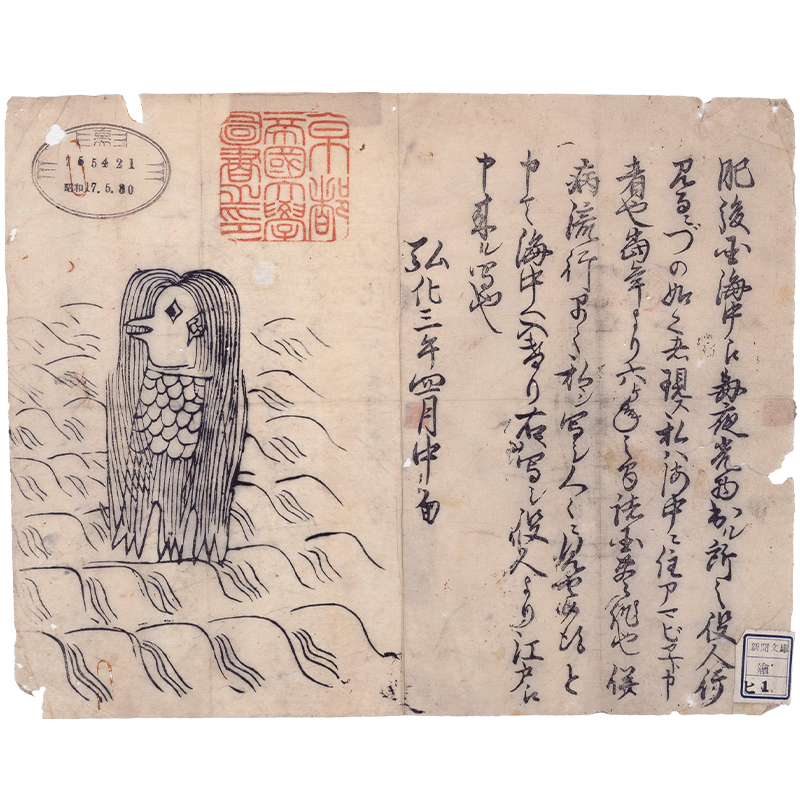 肥後国海中え毎夜光物出ル所之役人行
見るニづの如く者現ス私ハ海中ニ住アマビヱト申
者也当年より六ヶ年之間諸国豊作也併
病流行早々私シ写シ人々ニ見セ候得と
申て海中へ入けり右写シ役人より江戸え
申来ル写也
弘化三年四月中旬
京都
帝國大學
圖書之印
165421
昭和17.5.30
新聞文庫
繪
ヒ 1